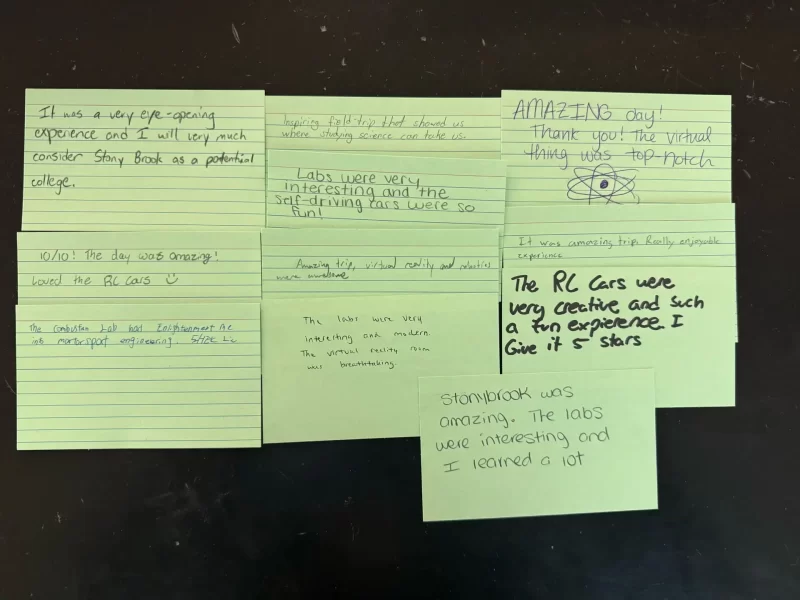 It was a very eye-opening
experience and I will very much
consider Stony Brook as a potential
college.
Inspiring field-trip that showed us
where studying science can take us.
AMAZING day!
Thank you! The virtual
thing was top-notch
Labs were very
interesting and the
self-driving cars were so
fun!
10/10! The day was amazing!
Loved the RC Cars
Amazing trip, virtual reality and robotics
were awesome
It was amazing trip. Really enjoyable
experience
The RC Cars were
very creative and such
a fun expierence I
Give it 5 stars
The Combustion Lab had Enlightenment
motorsport engineering.
The labs were very
interesting and modern.
The virtual reality room
was breathtaking.
Stonybrook was
amazing. The labs
were interesting and
I learned a lot